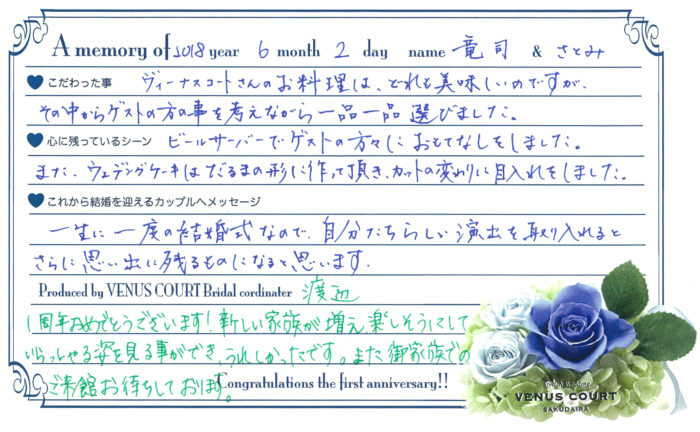 A memory of 2018 year 6 month 2 day name 竜司 & さとみ
こだわった事 ヴィーナスコートさんのお料理は、どれも美味しいのですが、
その中からゲストの方の事を考えながら一品一品選びました。
心に残っているシーン ビールサーバーでゲストの方々におもてなしをしました。
また、ウェディングケーキはだるまの形に作って頂き、カットの変わりに目入れをしました。
これから結婚を迎えるカップルへメッセージ
一生に一度の結婚式なので、自分たちらしい演出を取り入れると
さらに思い出に残るものになると思います。
Produced by VENUS COURT Bridal cordinater 渡辺
1周年おめでとうございます!新しい家族が増え、楽しそうにして
いらっしゃる姿を見る事ができ、うれしかったです。また御家族での
ご来館お待ちしております。
Congratulations the first anniversary!!
VENUS COURT
SAKUDAIRA